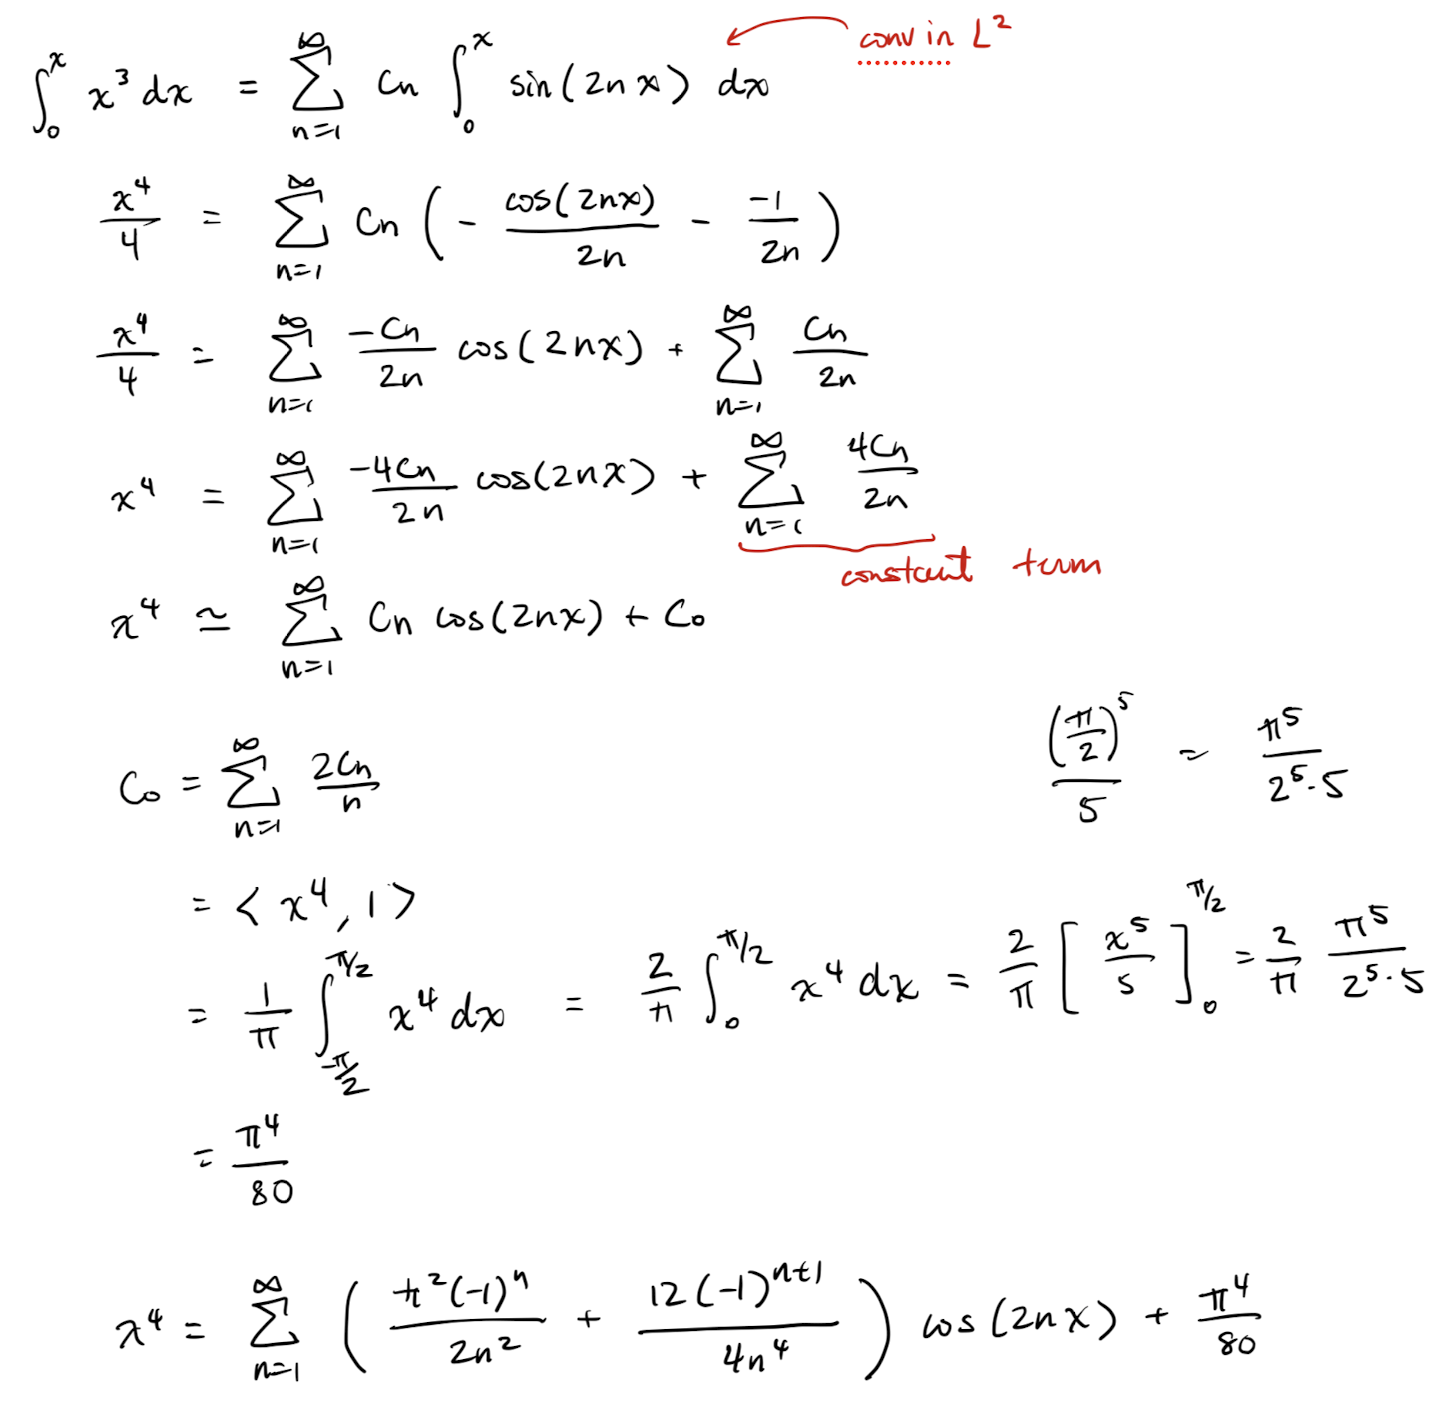 ∫₀ˣ x³ dx = ∑_{n=1}^{∞} Cn ∫₀ˣ sin(2nx) dx ← conv in L²
x⁴/4 = ∑_{n=1}^{∞} Cn ( - cos(2nx)/2n - -1/2n )
x⁴/4 = ∑_{n=1}^{∞} -Cn/2n cos(2nx) + ∑_{n=1}^{∞} Cn/2n
x⁴ = ∑_{n=1}^{∞} -4Cn/2n cos(2nx) + ∑_{n=1}^{∞} 4Cn/2n
constant term
x⁴ ≃ ∑_{n=1}^{∞} Cn cos(2nx) + C₀
(π/2)⁵/5 = π⁵/(2⁵·5)
C₀ = ∑_{n=1}^{∞} 2Cn/n
= < x⁴, 1 >
= 1/π ∫_{-π/2}^{π/2} x⁴ dx = 2/π ∫₀^{π/2} x⁴ dx = 2/π [ x⁵/5 ]₀^{π/2} = 2/π π⁵/(2⁵·5)
= π⁴/80
x⁴ = ∑_{n=1}^{∞} ( π²(-1)ⁿ/2n² + 12(-1)ⁿ⁺¹/4n⁴ ) cos(2nx) + π⁴/80